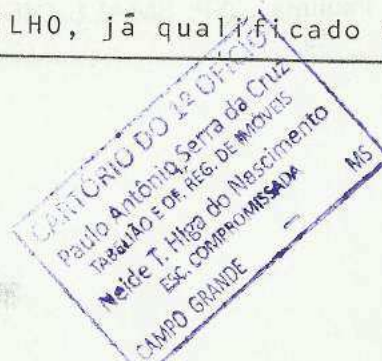 LHO, já qualificado
CARTÓRIO DO 1º OFÍCIO
Paulo Antônio Serra da Cruz
TABELIÃO E OF. REG. DE IMÓVEIS
Neide T. Higa do Nascimento
ESC. COMPROMISSADA
CAMPO GRANDE - MS